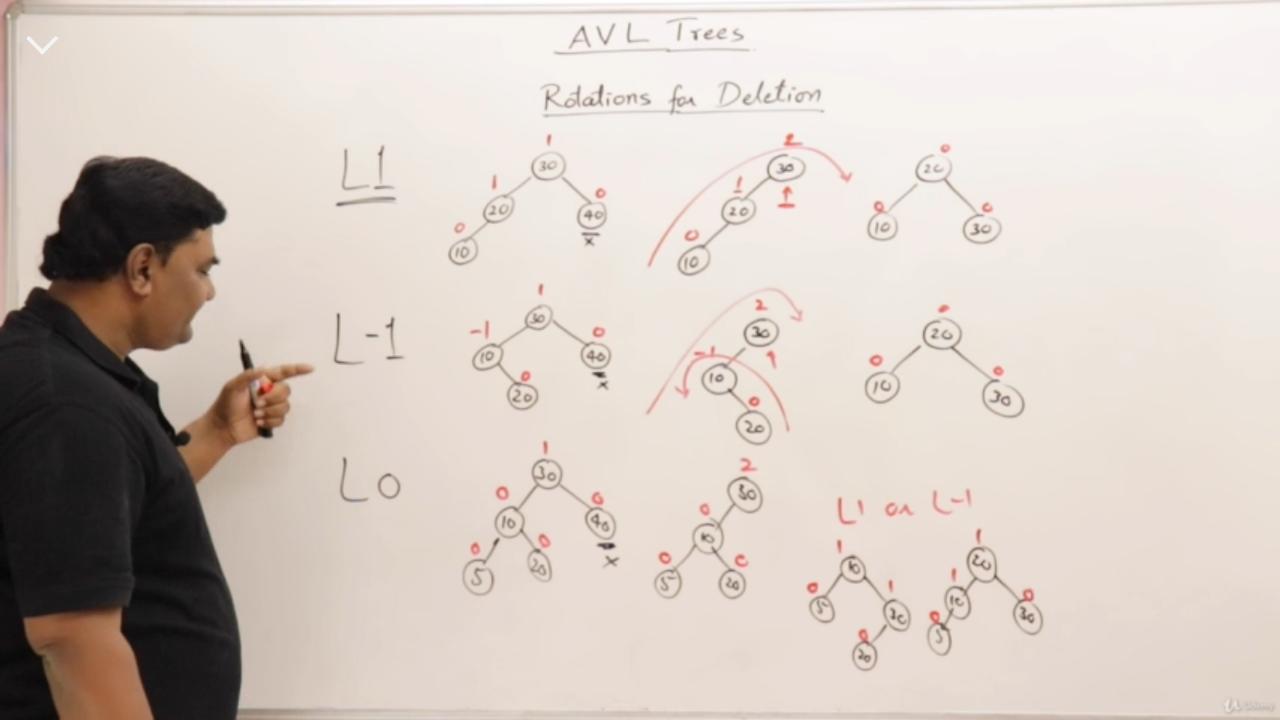 AVL Trees
Rotations for Deletion
L1
1
30
1
20
0
40
x
0
10
2
30
1
1
20
0
10
0
20
0
10
0
30
L-1
1
30
-1
10
0
40
x
0
20
2
30
1
-1
10
0
20
0
20
0
10
0
30
L0
1
30
0
10
0
40
x
0
5
0
20
2
30
0
10
0
5
0
20
L1 or L-1
1
10
0
5
1
30
0
20
1
20
1
10
0
30
0
5
Udemy